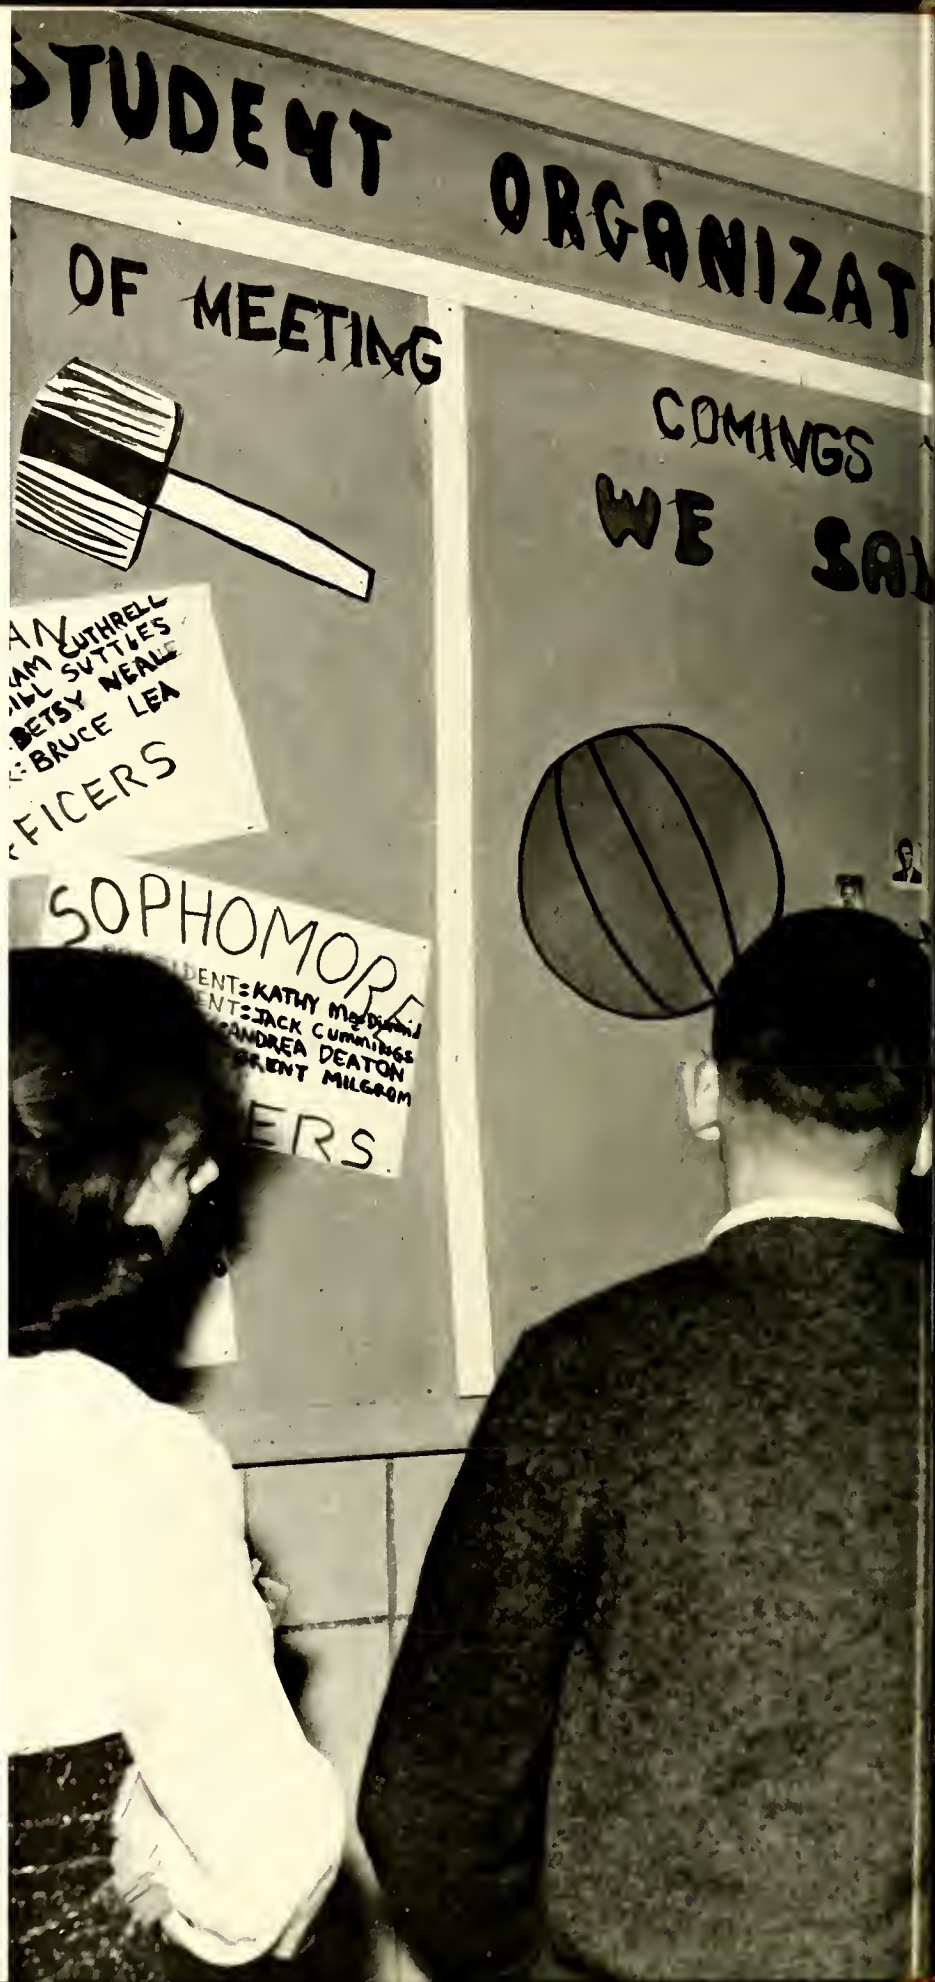 STUDENT ORGANIZAT
OF MEETING
COMINGS
WE SAL
AN
AM CUTHRELL
BILL SUTTLES
BETSY NEALE
R: BRUCE LEA
FFICERS
SOPHOMORE
IDENT: KATHY MacDiarmid
ENT: JACK CUMMINGS
: ANDREA DEATON
BRENT MILGROM
ERS